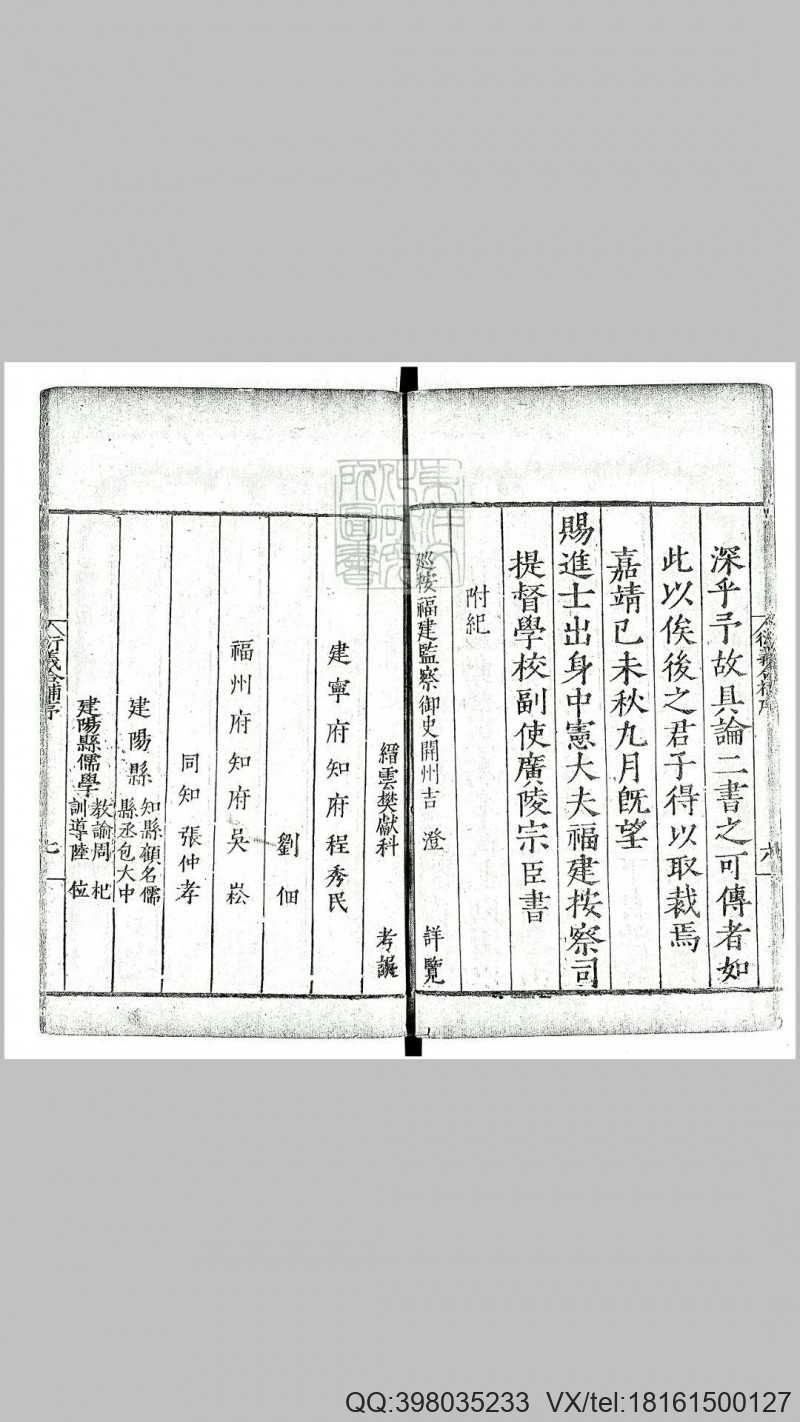 深乎予故具論二書之可傳者如
此以俟後之君子得以取裁焉
嘉靖己未秋九月既望
賜進士出身中憲大夫福建按察司
提督學校副使廣陵宗臣書
附紀
巡按福建監察御史開州吉 澄 詳覽
縉雲樊獻科 考誤
建寧府知府程秀民
劉 佃
福州府知府吳 崧
同知張仲孝
建陽縣 知縣顧名儒
縣丞包大中
建陽縣儒學 教諭周 杞
訓導陸 位
衍義合補序 七
QQ:398035233 VX/tel:18161500127